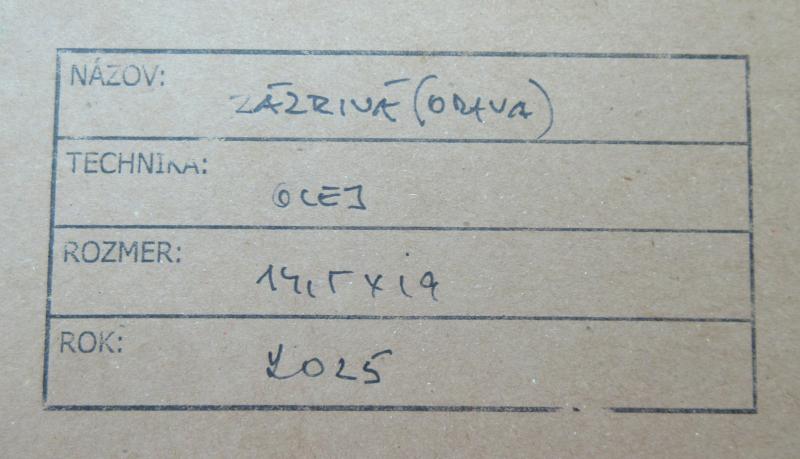 NÁZOV: ZÁZRIVÁ (ORAVA)
TECHNIKA: OLEJ
ROZMER: 14,5 x 19
ROK: 2025